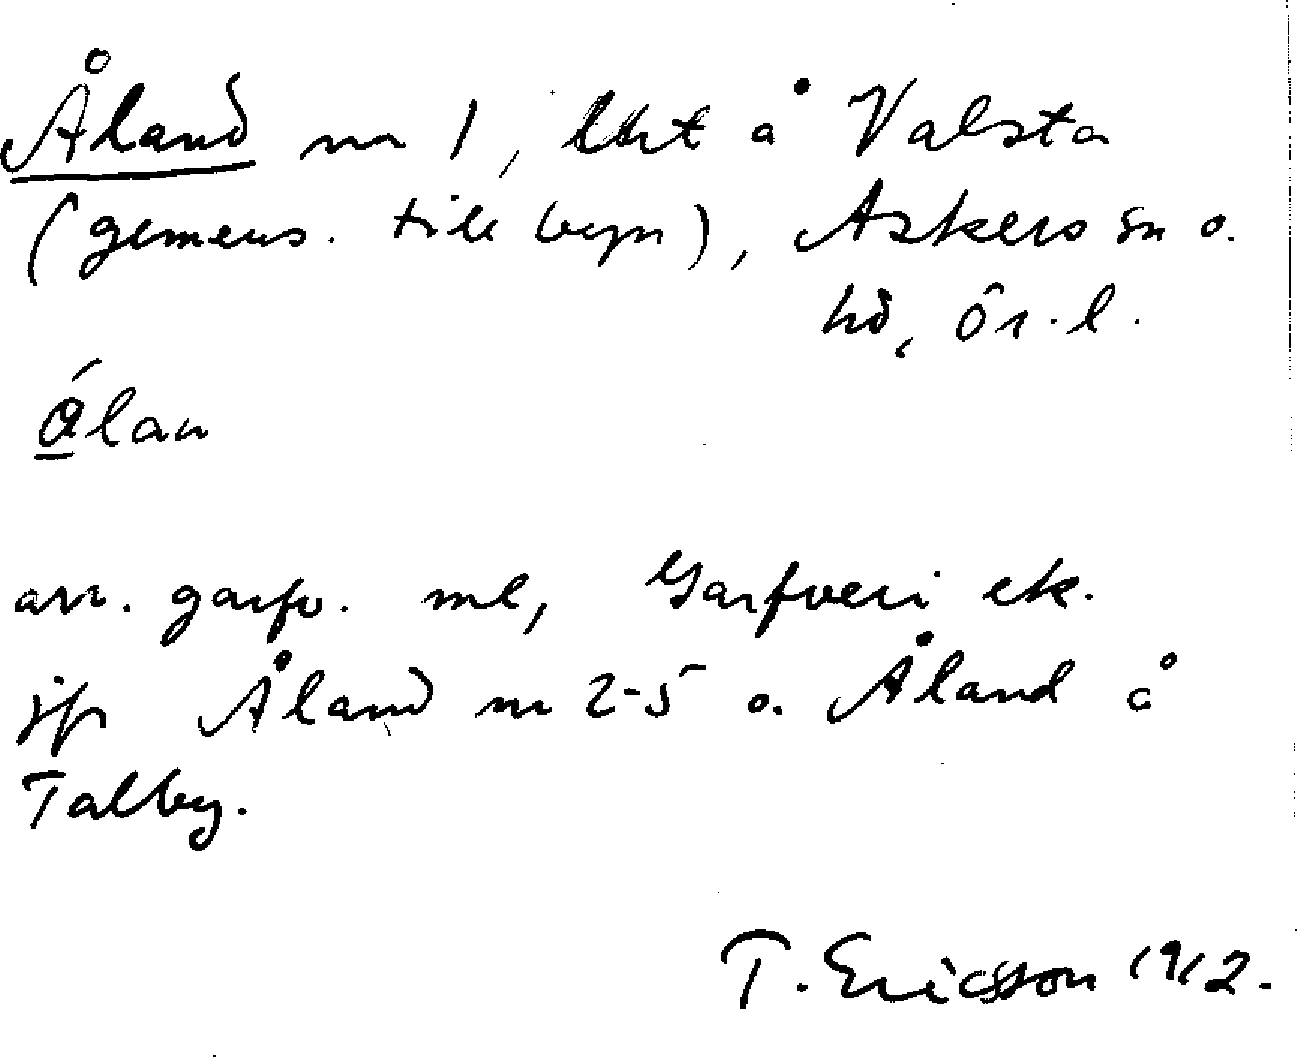 Åland nr 1, lht å Valsta
(gemens. till byn), Askers sn o.
hd, Ör. l.
ålan
arr. garfv. ml, Garfveri ek.
jfr Åland nr 2-5 o. Åland å
Talby.
T. Ericsson 1912.